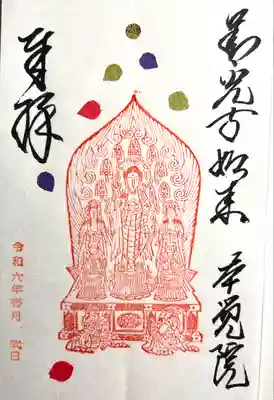 善光寺如来 本覚院
奉拝
令和六年 月 日